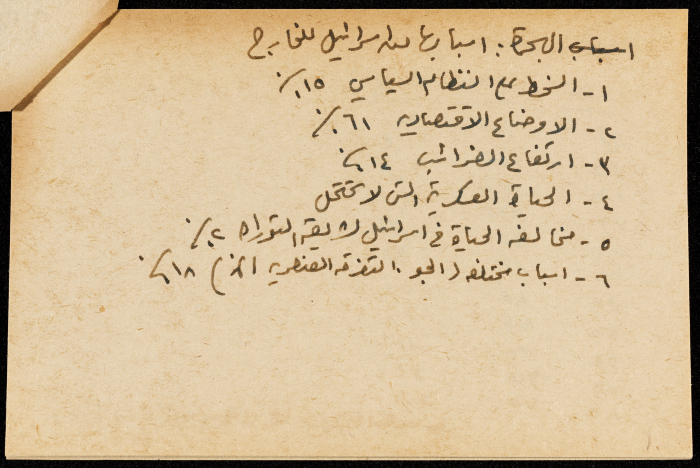 اسباب الهجرة: اسبابها من اسرائيل للخارج
١- السخط مع النظام السياسي ١٥٪
٢- الاوضاع الاقتصادية ٦١٪
٣- ارتفاع الضرائب ١٤٪
٤- الحياة العسكرية التي لا تحتمل
٥- مخالفة الحياة في اسرائيل لـ التوراه ٢٪
٦- اسباب مختلفه (الجو، التفرقه العنصريه الخ) ١٨٪